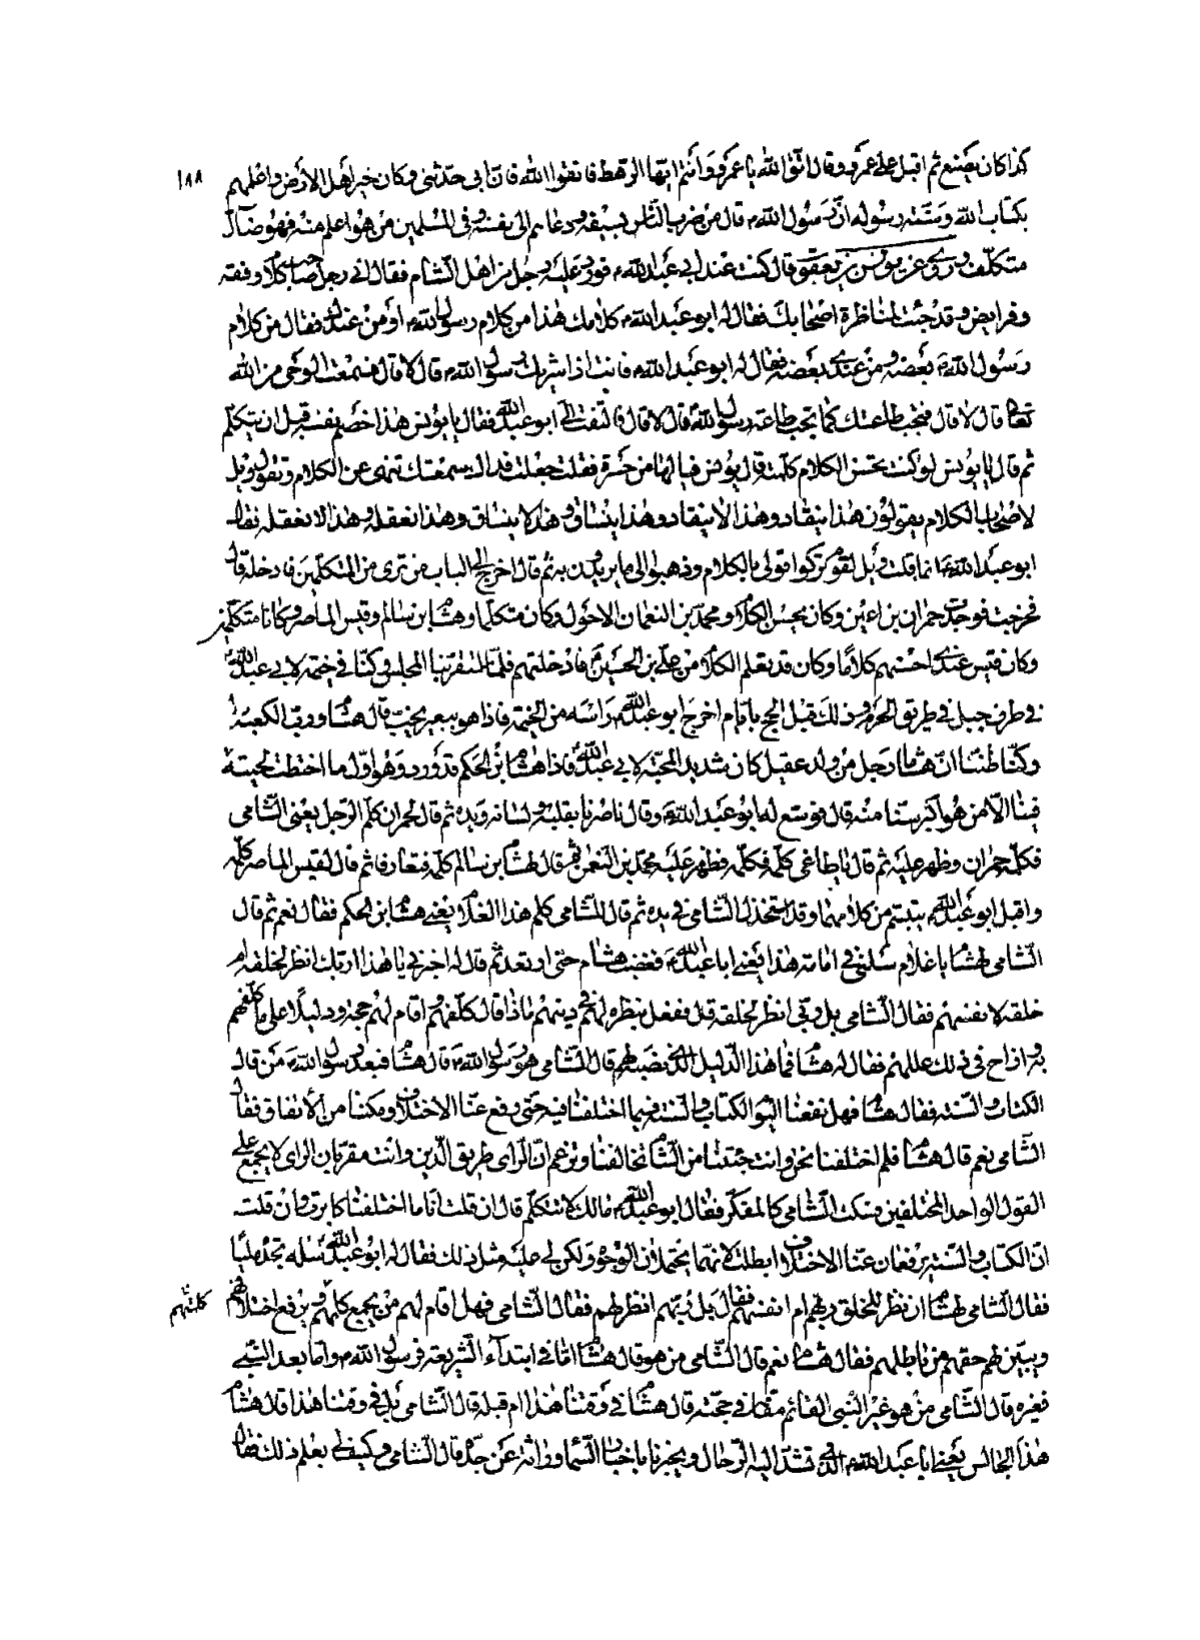 كذا كان يصنع ثم اقبل على عمرو وقال اتق الله يا عمرو وانتم ايها الرهط فاتقوا الله فان ابي حدثني وكان خير اهل الارض واعلمهم
١٨٨
بكتاب الله وسنة رسوله ان رسول الله ص قال من ضرب الناس بسيفه ودعاهم الى نفسه وفي المسلمين من هو اعلم منه فهو ضآل
متكلف وروى عن يونس بن يعقوب قال كنت عند ابي عبد الله ع فورد عليه رجل من اهل الشام فقال اني رجل صاحب كلام وفقه
وفرايض وقد جئت لمناظرة اصحابك فقال له ابو عبد الله ع كلامك هذا من كلام رسول الله ص او من عندك فقال من كلام
رسول الله ص بعضه ومن عندي بعضه فقال له ابو عبد الله ع فانت اذا شريك رسول الله ص قال لا قال فسمعت الوحي من الله
تعالى قال لا قال فتجب طاعتك كما تجب طاعة رسول الله ص قال لا قال فالتفت الى ابو عبد الله ع فقال يا يونس هذا خصم نفسه قبل ان يتكلم
ثم قال يا يونس لو كنت تحسن الكلام كلمته قال يونس فيا لها من حسرة فقلت جعلت فداك سمعتك تنهى عن الكلام وتقول ويل
لاصحاب الكلام يقولون هذا ينقاد وهذا لا ينقاد وهذا ينساق وهذا لا ينساق وهذا نعقله وهذا لا نعقله فقال
ابو عبد الله ع انما قلت ويل لقوم تركوا قولي بالكلام وذهبوا الى ما يريدون به ثم قال اخرج الى الباب من ترى من المتكلمين فادخله قال
فخرجت فوجدت حمران بن اعين وكان يحسن الكلام ومحمد بن النعمان الاحول وكان متكلما وهشام بن سالم وقيس الماصر وكانا متكلمين
وكان قيس عندي احسنهم كلاما وكان قد تعلم الكلام من علي بن الحسين ع فادخلتهم فلما استقر بنا المجلس وكنا في خيمة لابي عبد الله ع
في طرف جبل في طريق الحرم وذلك قبل الحج بايام اخرج ابو عبد الله ع راسه من الخيمة فاذا هو ببعير يخب قال هشام ورب الكعبة
وكنا ظننا ان هشاما رجل من ولد عقيل كان شديد المحبة لابي عبد الله ع فاذا هشام بن الحكم قد ورد وهو اول ما اختطت لحيته
فينا الا من هو اكبر سنا منه قال فوسع له ابو عبد الله ع وقال ناصرنا بقلبه ولسانه ويده ثم قال لحمران كلم الرجل يعني الشامي
فكلمه حمران وظهر عليه ثم قال يا طاقي كلمه فكلمه فظهر عليه محمد بن النعمن ثم قال لهشام بن سالم كلمه فتعارفا ثم قال لقيس الماصر كلمه
واقبل ابو عبد الله ع يتبسم من كلامهما وقد استخذل الشامي في يده ثم قال للشامي كلم هذا الغلام يعني هشام بن الحكم فقال نعم ثم قال
الشامي لهشام يا غلام سلني في امامة هذا يعني ابا عبد الله ع فغضب هشام حتى ارتعد ثم قال له اخبرني يا هذا اربك انظر لخلقه ام
خلقه لانفسهم فقال الشامي بل ربي انظر لخلقه قال ففعل بنظره لهم في دينهم ماذا قال كلفهم واقام لهم حجة ودليلا على ما كلفهم
به وازاح في ذلك عللهم فقال له هشام فما هذا الدليل الذي نصبه لهم قال الشامي هو رسول الله ص قال هشام فبعد رسول الله ص من قال
الكتاب والسنة فقال هشام فهل نفعنا اليوم الكتاب والسنة فيما اختلفنا فيه حتى رفع عنا الاختلاف ومكننا من الاتفاق فقال
الشامي نعم قال هشام فلم اختلفنا نحن وانت جئتنا من الشام تخالفنا وتزعم ان الراى طريق الدين وانت مقر بان الراى لا يجمع على
القول الواحد المختلفين فسكت الشامي كالمفكر فقال ابو عبد الله ع ما لك لا تتكلم قال ان قلت انا ما اختلفنا كابرت وان قلت
ان الكتاب والسنة يرفعان عنا الاختلاف ابطلت لانهما يحتملان الوجوه ولكن لي عليه مثل ذلك فقال له ابو عبد الله ع سله تجده مليا
فقال الشامي لهشام من انظر للخلق ربهم ام انفسهم فقال بل ربهم انظر لهم فقال الشامي فهل اقام لهم من يجمع كلمتهم ويرفع اختلافهم
كلمتهم
ويبين لهم حقهم من باطلهم فقال هشام نعم قال الشامي من هو قال هشام اما في ابتداء الشريعة فرسول الله ص واما بعد النبي
فغيره قال الشامي من هو غير النبي القائم مقامه في حجته قال هشام في وقتنا هذا ام قبله قال الشامي بل في وقتنا هذا قال هشام
هذا الجالس يعني ابا عبد الله ع الذي تشد اليه الرحال ويخبرنا باخبار السماء وراثة عن جده قال الشامي وكيف لي بعلم ذلك فقال